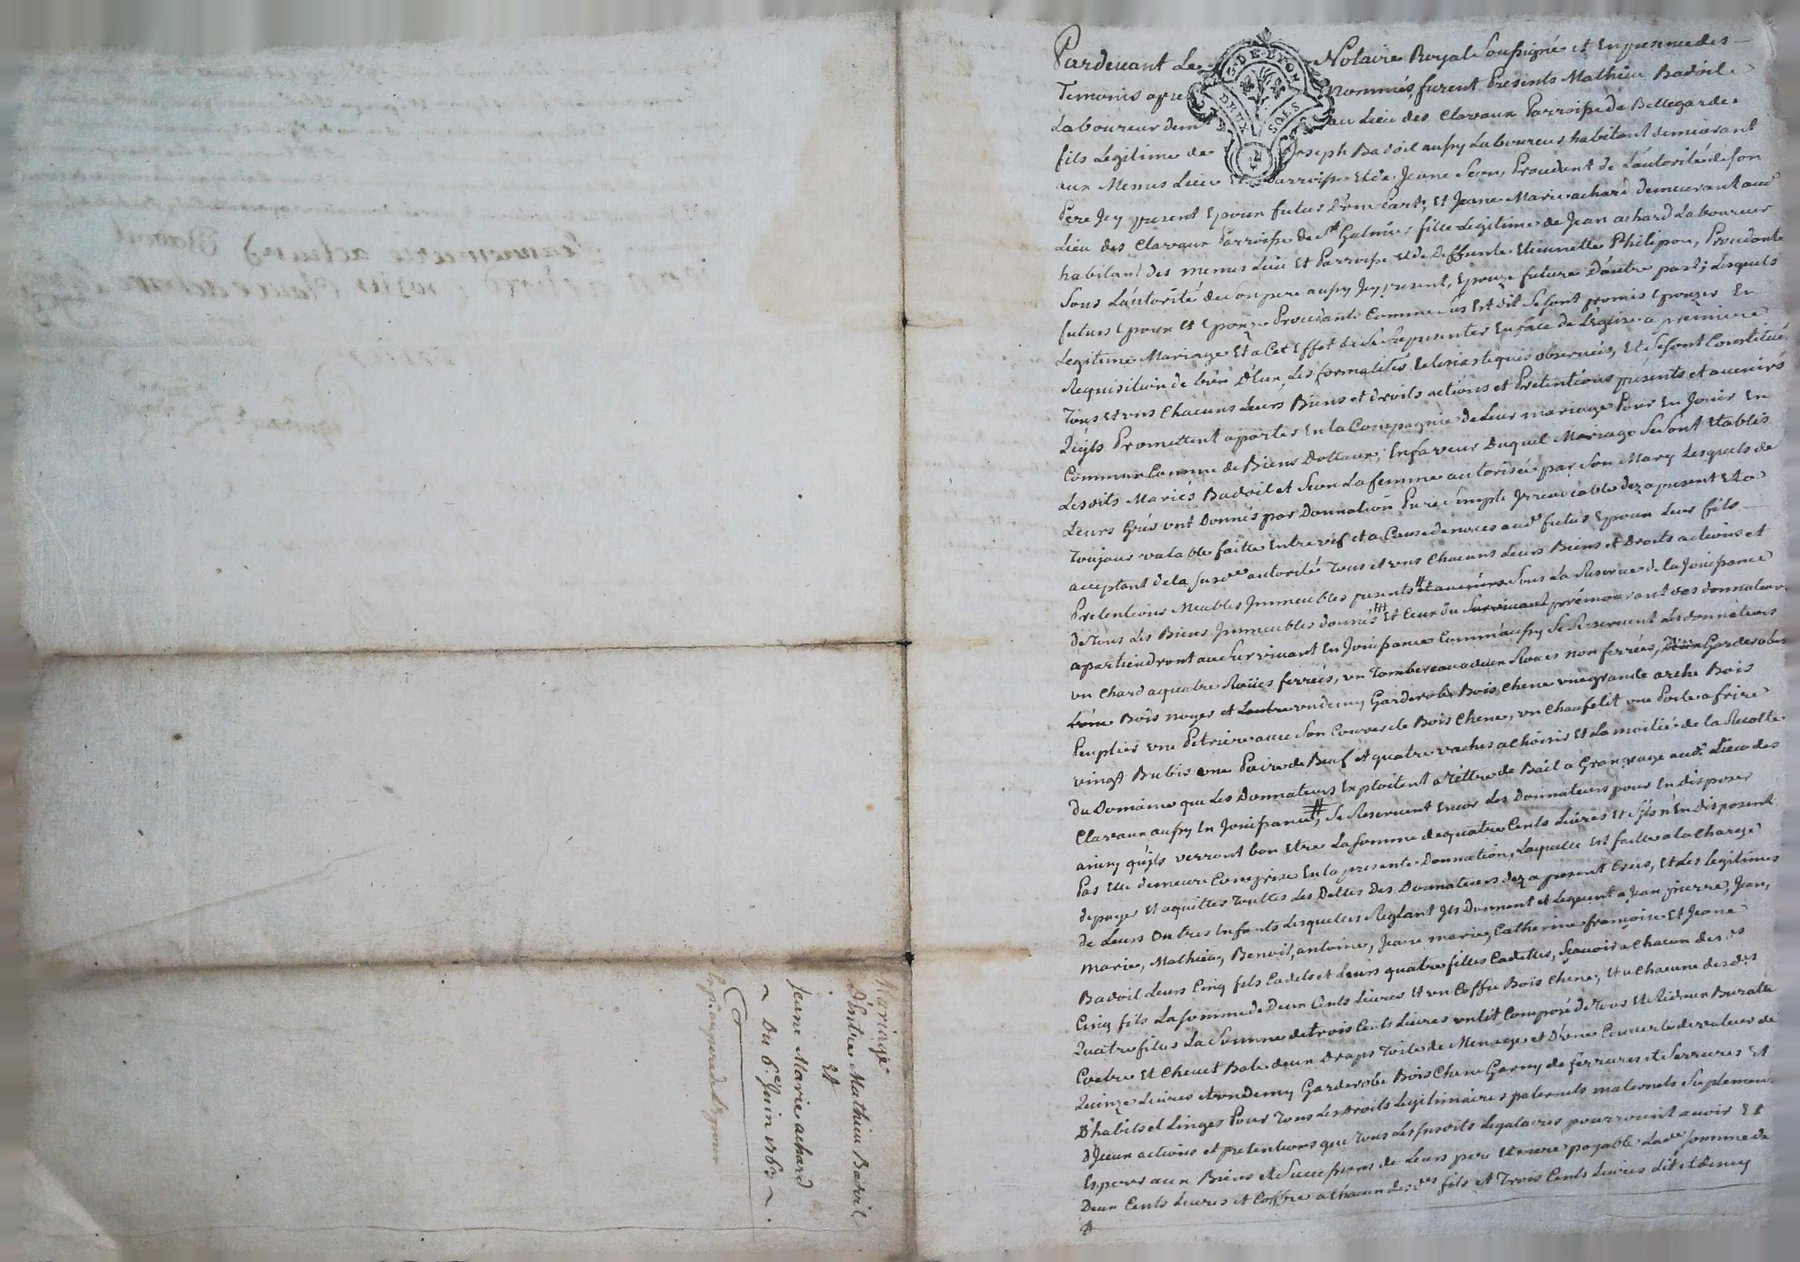 Pardevant Le Notaire Royal Soussigné et En presence des
Temoins apres nommés, furent Presents Mathieu Badoil
Laboureur dem au Lieu des Clavaux Parroisse de Bellegarde
fils Legitime de Joseph Badoil aussy Laboureur habitant demeurant
aux Memes Lieu Et Parroisse Et de Jeane Seon, Procedant de L'autorité de Son
Pere Jcy present Epoux futur D'une Part; Et Jeane Marie achard demeurant aud
Lieu des Clavaux Parroisse de St Galmier fille Legitime de Jean achard Laboureur
habitant des memes Lieu Et Parroisse et de Deffunte Etiennette Philipon, Procedante
Sous L'autorité de Son pere aussy Jcy present, Epouze future D'autre part; Lesquels
futurs Epoux Et Epouze Procedants Comme dit Est Se Sont promis Epouzer En
Legitime Mariage Et a Cet Effet de Se Representer En face de L'Eglise a premiere
Requisition de L'un D'Eux, Les formalités Eclesiastiques observées, Et Se Sont Constitués
Tous et uns Chacuns Leurs Biens et droits actions et Pretentions presents et avenirs
Qu'jls Promettent apporter En la Compagnie de Leur mariage Pour En Jouir En
Commun Comme de Biens Dottaux; En faveur Duquel Mariage Se Sont Etablis
Lesdits Mariés Badoil et Seon La femme autorisée par Son Mary Lesquels de
Leurs Grés ont Donnés par Donnation Pure Simple Jrrevocable dez a present Et a
Toujour valable faitte Entre vif et a Cause de noces aud futur Epoux Leur fils
acceptant de la susde autorité Tous et uns Chacuns Leurs Biens et Droits actions et
Pretentions Meubles Jmmeubles presents # et avenirs Sous La Reserve de la Jouissance
de Tous Les Biens Jmmeubles donnés ## Et Ceux du Survivant prémourant des donnateurs
apartiendront au Survivant En Jouissance Comm'aussy Se Reservent Les donnateurs
un Chard a quatre Roües ferrées, un Tombereau a deux Roües non ferrées, Deux Garderobes
L'une Bois noyer et L'autre un demy Garderobe Bois Chene une grande arche Bois
Peuplier une Petriere avec Son Couvercle Bois Chene, un Chaufelit une Poile a frire
vingt Brebis une Paire de Bœuf et quatre vaches a Choisir Et La moitié de la Recolte
du Domaine que Les Donnateurs Exploitent a Tittre de Bail a Grangeage aud Lieu des
Clavaux aussy En Jouissance #, Se Reservent Encor Les Donnateurs pour En disposer
ainsy qu'jls verront bon Etre La Somme de quatre Cents Livres Et S'jls n'En Disposent
Pas Elle demeure Comprise En la presente Donnation, Laquelle Est faitte a la Charge
de payer Et aquitter Touttes Les Dettes Des Donnateurs dez a present Crées, Et Les Legitimes
de Leurs autres Enfants Lesquelles Reglant Jls Donnent et Leguent a Jean pierre, Jean,
Marie, Mathieu, Benoit, antoine, Jeane marie, Catherine françoise Et Jeane
Badoil Leurs Cinq fils Cadets et Leurs quatre filles Cadettes, Sçavoir a Chacun des ds
Cinq fils La Somme de Deux Cents Livres Et un Coffre Bois Chene; Et a Chacune des ds
Quatre filles La Somme de trois Cents Livres un lit Composé de Tour Et Rideaux Burate
Coetre Et Chevet Bale deux draps Toile de Menage et D'une Couverte de valeur de
Quinze Livres et un demy Garderobe Bois Chene Garny de ferrures et Serrures Et
D'habits et Linges Pour Tous Les droits Legitimaires paternels maternels Suplement
D'Jceux actions et pretentions que Tous Les susdits Legataires pourroient avoir Et
Esperer aux Biens et Successions de Leurs pere Et mere payable Lade Somme de
Deux Cents Livres et Coffre a Chacun des ds fils et Trois Cents Livres Lit et demy
Mariage
D'Entre Mathieu Badoil
Et
Jeane Marie achard
Du 6e Juin 1763